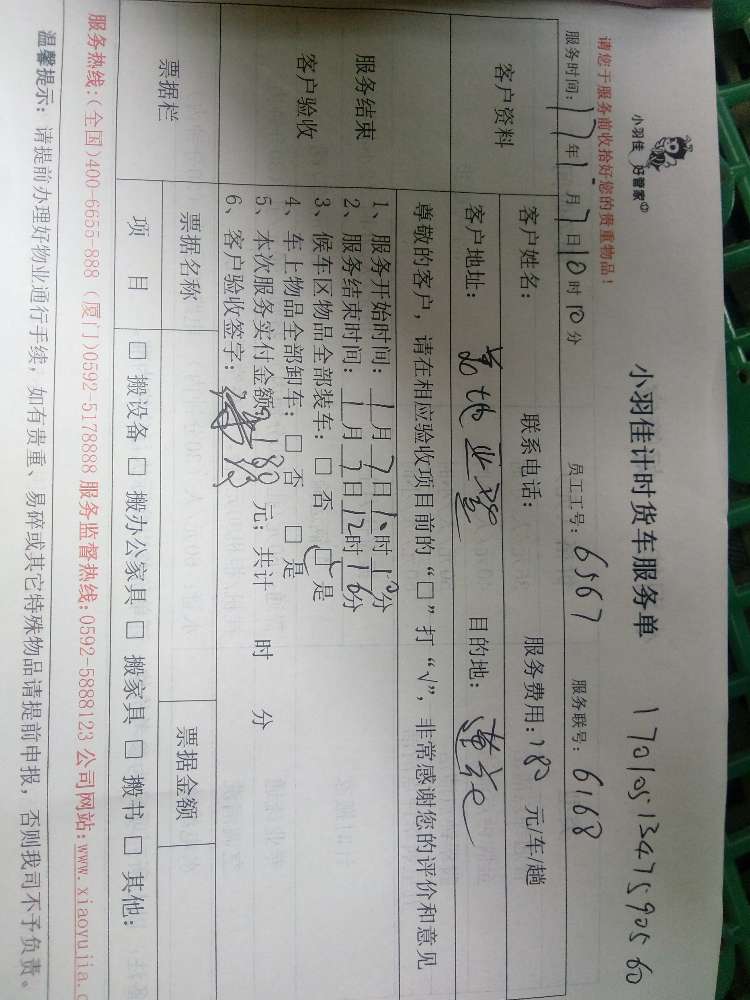 小羽佳 好管家
小羽佳计时货车服务单 1701051347590560
请您于服务前收拾好您的贵重物品!
服务时间: 17 年 1 月 7 日 10 时 10 分 员工工号: 6567 服务联号: 6168
客户资料
客户姓名: 联系电话: 服务费用: 180 元/车/趟
客户地址: 目的地: 莲花
服务结束
客户验收
尊敬的客户，请在相应验收项目前的“□”打“√”，非常感谢您的评价和意见
1、服务开始时间: 1 月 7 日 10 时 10 分
2、服务结束时间: 1 月 7 日 12 时 16 分
3、候车区物品全部装车: □ 否 □ 是
4、车上物品全部卸车: □ 否 □ 是
5、本次服务实付金额: 180 元; 共计 时 分
6、客户验收签字:
票据栏
票据名称 票据金额
项 目 □ 搬设备 □ 搬办公家具 □ 搬家具 □ 搬书 □ 其他:
服务热线:(全国)400-6655-888 (厦门)0592-5178888 服务监督热线:0592-5888123 公司网站:www.xiaoyujia.c
温馨提示: 请提前办理好物业通行手续，如有贵重、易碎或其它特殊物品请提前申报，否则我司不予负责。